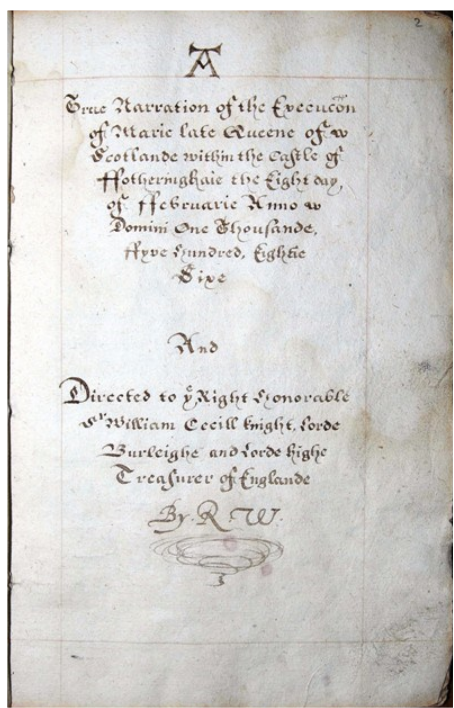 2
A
True Narration of the Execucōn
of Marie late Queene of
Scotlande within the Castle of
ffotheringhaie the Eight day,
of ffebruarie Anno
Domini One Thousande,
ffyve Hundred, Eightie
Sixe
And
Directed to yᵉ Right Honorable
Sʳ William Cecill knight, Lorde
Burleighe and Lorde highe
Treasurer of Englande
By. R. W.